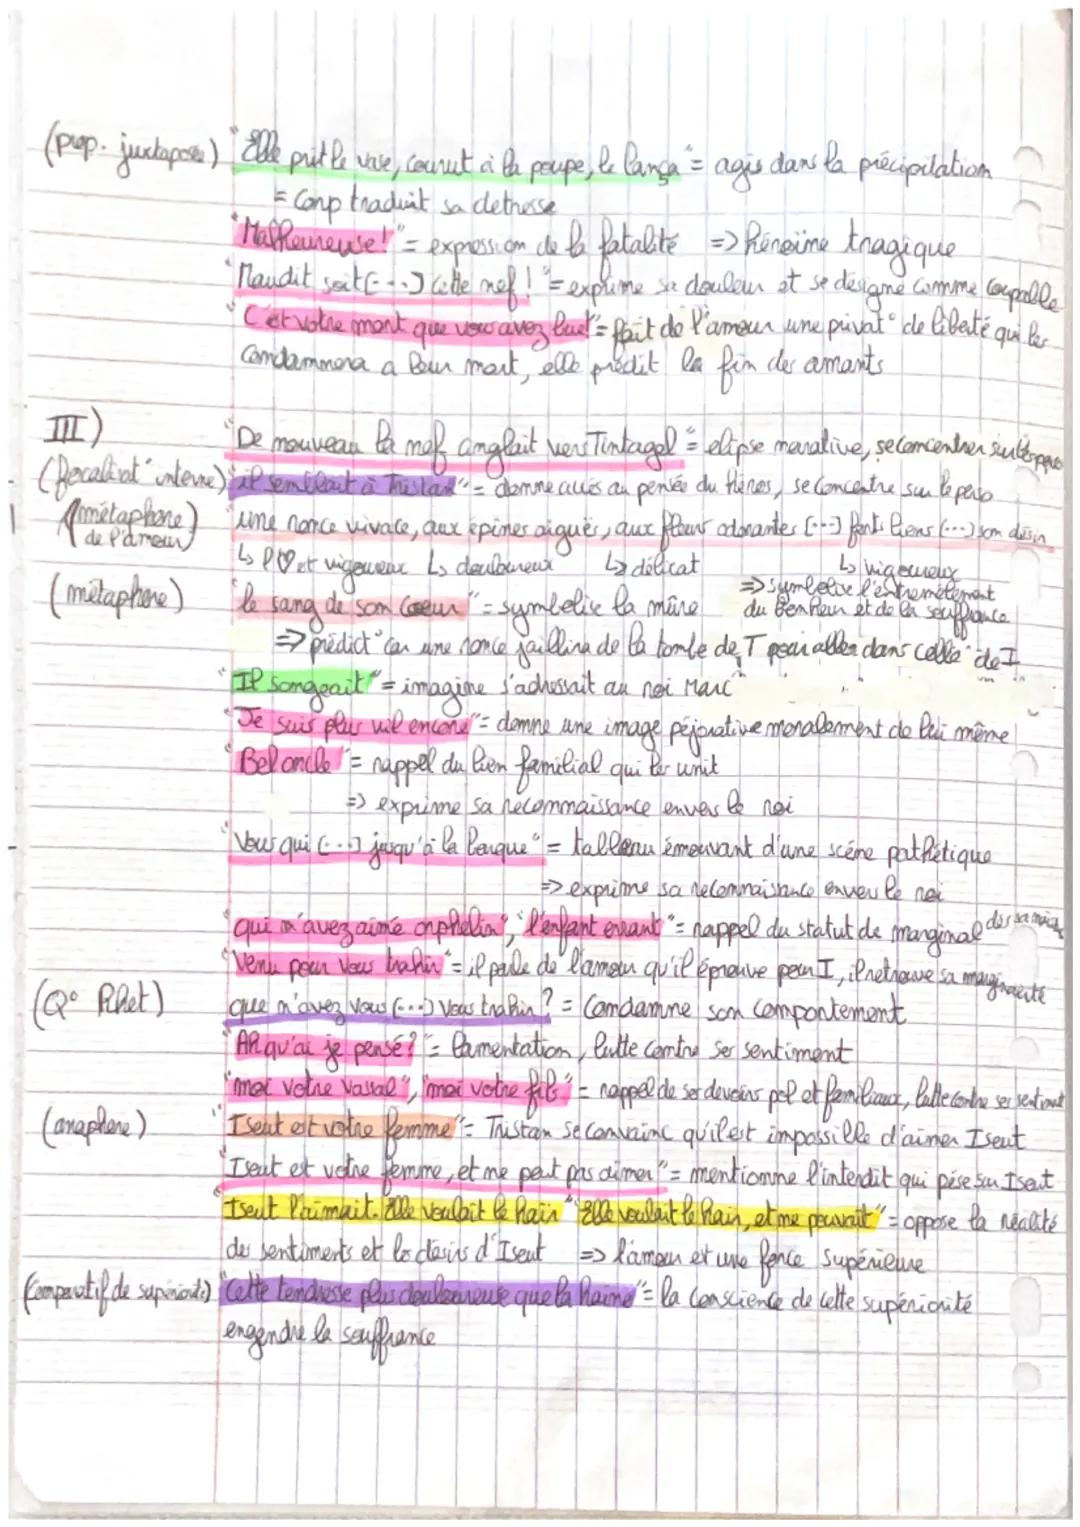 (prop. juxtaposée) "Elle prit le vase, courut à la poupe, le lança" = agis dans la précipitation
= Comp traduit sa detresse
"Malheureuse!" = expression de la fatalité => héroïne tragique
"Maudit soit [...] cette nef!" = exprime sa douleur et se désigne comme coupable
"C'est votre mort que vous avez bue!" = fait de l'amour une privat° de liberté qui les
condamnera a leur mort, elle prédit la fin des amants
III)
"De nouveau la nef cinglait vers Tintagel" = elipse narative, se concentrer sur les perso
(focalisat° interne) "il semblait à Tristan" = donne accès au pensée du héros, se concentre sur le perso
(métaphore de l'amour) "une ronce vivace, aux épines aiguës, aux fleurs odorantes [...] forts liens [...] son désir
↳ l'♡ et vigoureux ↳ douloureux ↳ délicat ↳ vigoureux
=> symbolise l'entremêlement
(métaphore) "le sang de son coeur" = symbolise la mûre du bonheur et de la souffrance
=> prédict° car une ronce jaillira de la tombe de T pour aller dans celle de I
"Il songeait" = imagine s'adressait au roi Marc
"Je suis plus vil encore" = donne une image péjorative moralement de lui même
"Bel oncle" = rappel du lien familial qui les unit
=> exprime sa reconnaissance envers le roi
"Vous qui [...] jusqu'à la barque" = tableau émouvant d'une scène pathétique
=> exprime sa reconnaissance envers le roi
"qui m'avez aimé orphelin", "l'enfant errant" = rappel du statut de marginal
"Venu pour vous trahir" = il parle de l'amour qu'il éprouve pour I, il retrouve sa marginalité
(Q° Rhet) que m'avez vous [...] vous trahir? = Condamne son comportement
"Ah qu'ai je pensé?" = lamentation, lutte contre ses sentiment
"moi votre vassal", "moi votre fils" = rappel de ses devoirs pol et familiaux, lutte contre ses sentiment
(anaphore) "Iseut est votre femme" = Tristan se convainc qu'il est impossible d'aimer Iseut
"Iseut est votre femme, et ne peut pas aimer" = mentionne l'interdit qui pèse sur Iseut
Iseut l'aimait. Elle voulait le haïr" "Elle voulait le haïr, et ne pouvait" = oppose la réalité
des sentiments et les désirs d'Iseut => l'amour est une force supérieure
(comparatif de supériorité) "Cette tendresse plus douloureuse que la haine" = la conscience de cette supériorité
engendre la souffrance